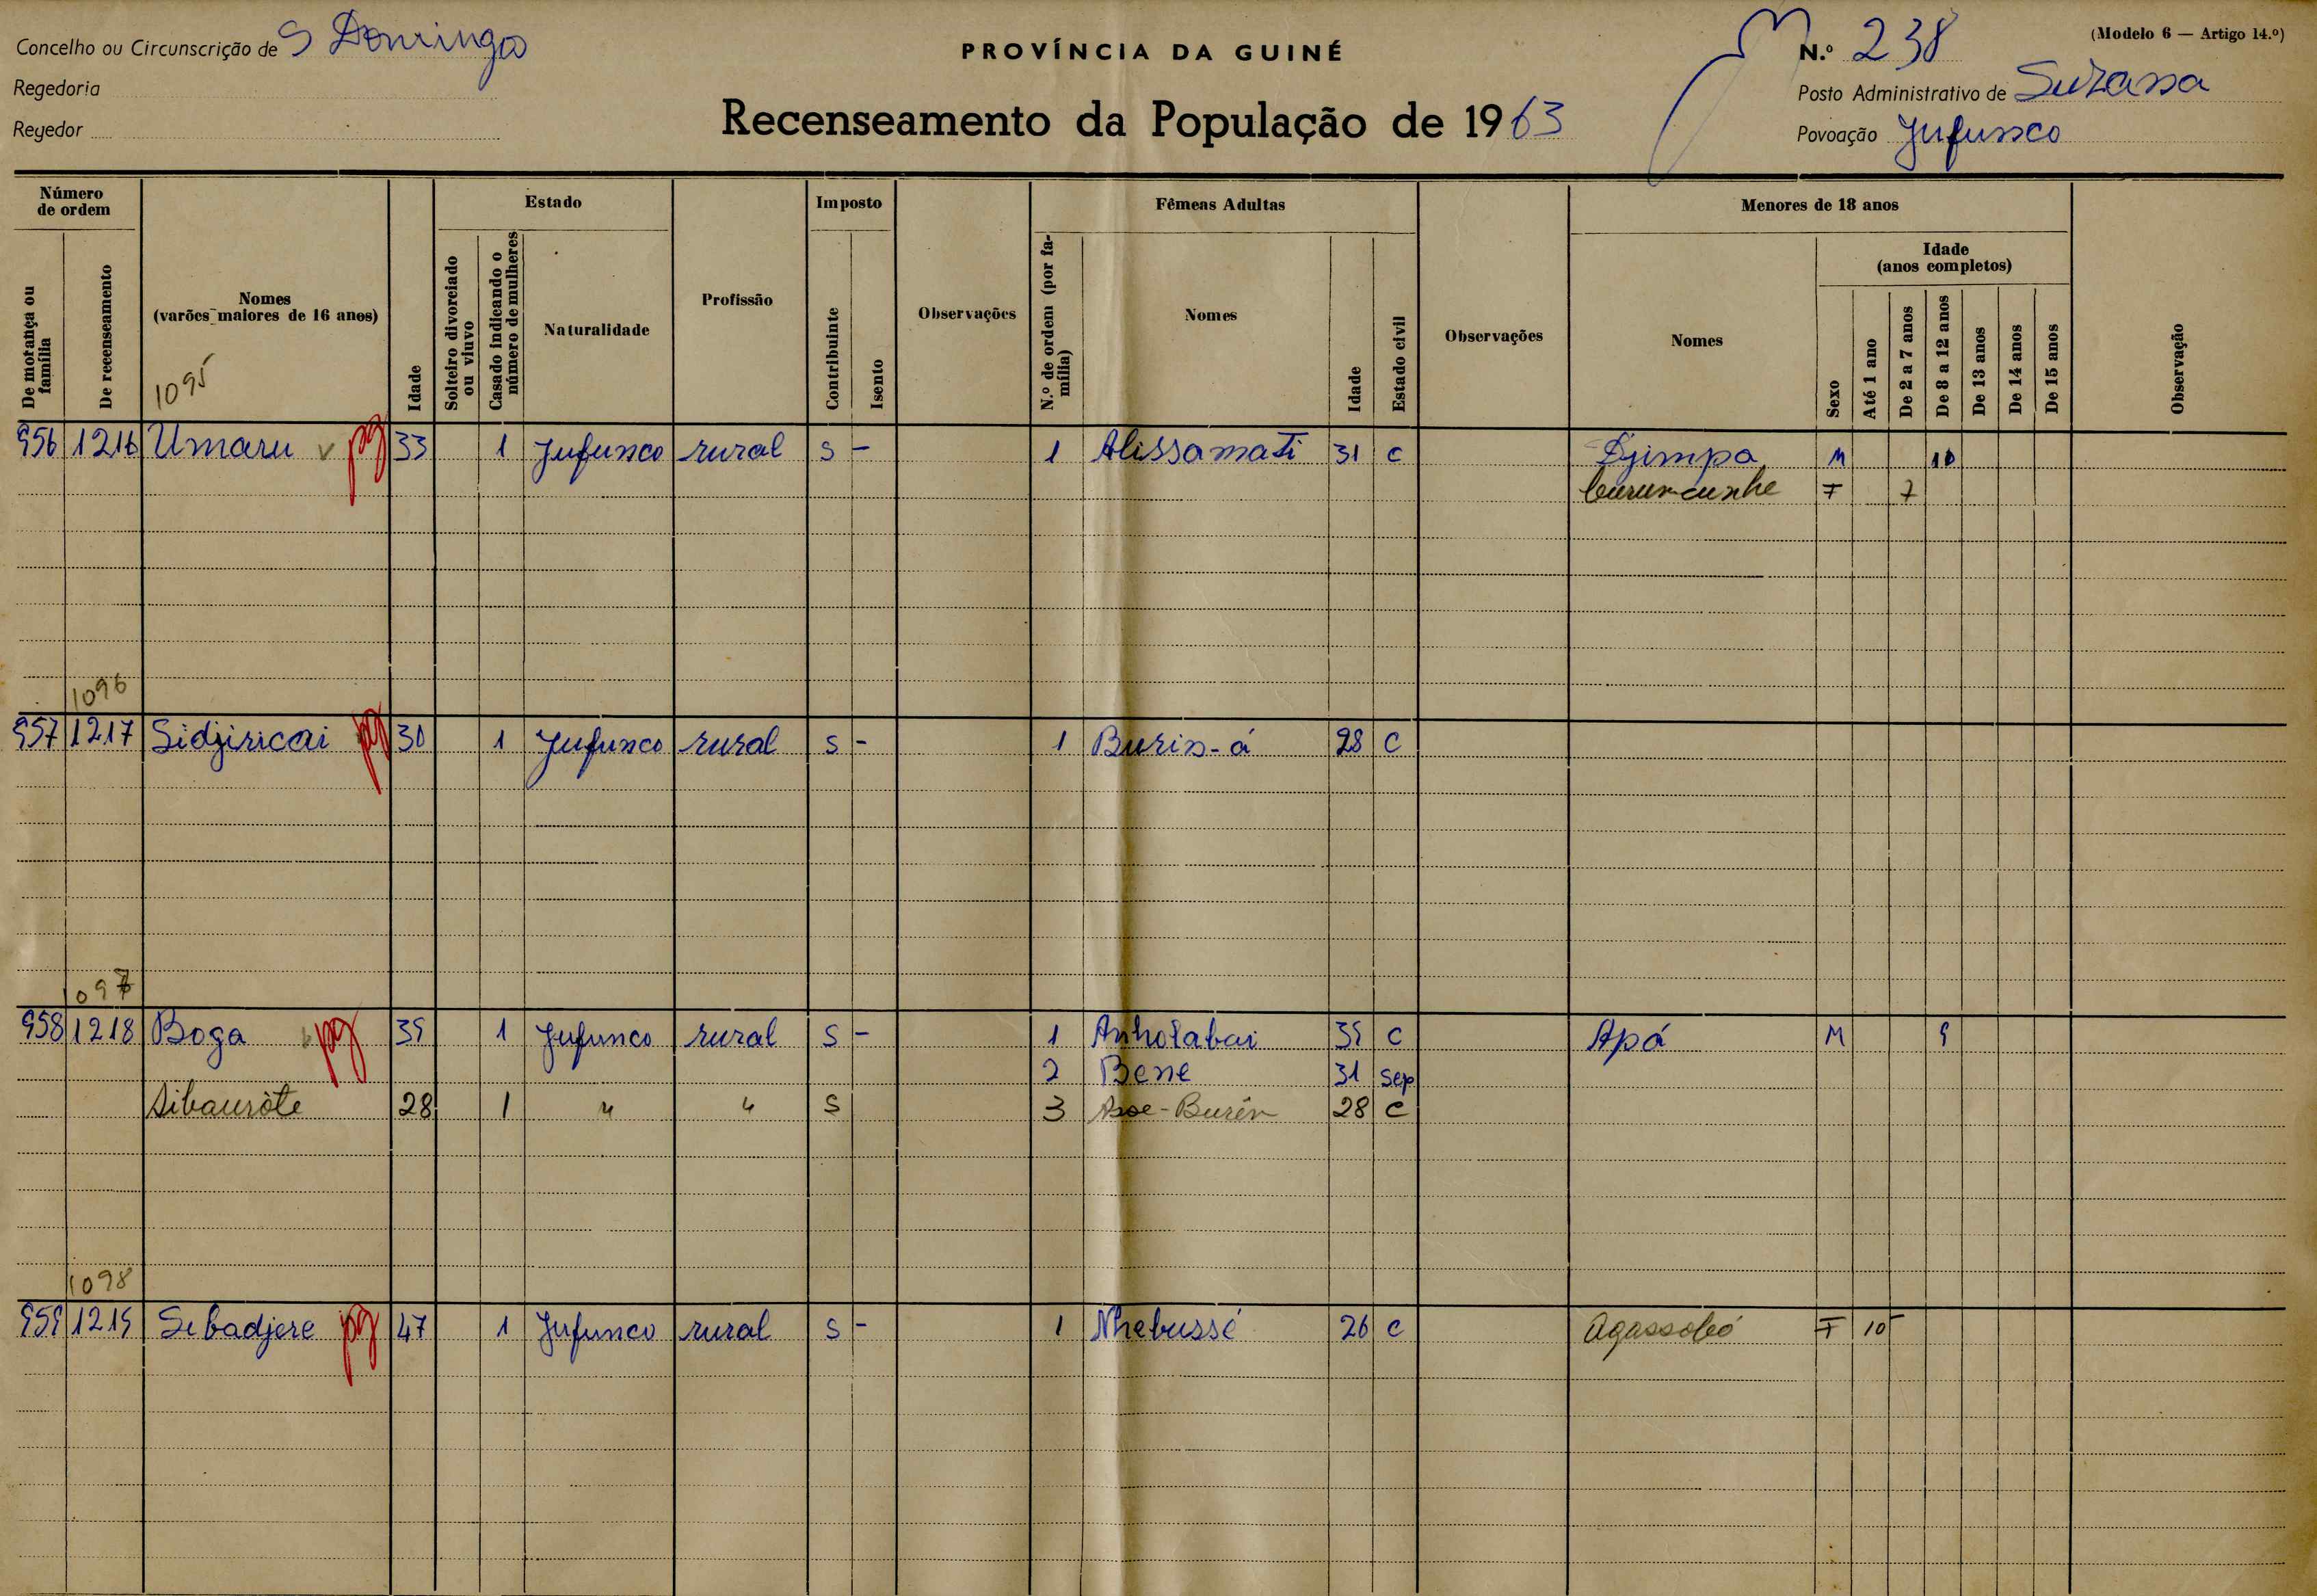 Concelho ou Circunscrição de S Domingos
PROVÍNCIA DA GUINÉ
N.º 238
(Modelo 6 — Artigo 14.º)
Regedoria
Posto Administrativo de Suzana
Regedor
Recenseamento da População de 1963
Povoação Jufunco
Número de ordem
De morança ou família
De recenseamento
Nomes
(varões maiores de 16 anos)
1095
Idade
Estado
Solteiro divorciado ou viuvo
Casado indicando o número de mulheres
Naturalidade
Profissão
Imposto
Contribuinte
Isento
Observações
Fêmeas Adultas
N.º de ordem (por família)
Nomes
Idade
Estado civil
Observações
Menores de 18 anos
Nomes
Sexo
Idade
(anos completos)
Até 1 ano
De 2 a 7 anos
De 8 a 12 anos
De 13 anos
De 14 anos
De 15 anos
Observação
956 1216 Umaru v pg 33 1 Jufunco rural S - 1 Alissamati 31 C Djimpa M 10
F 7
1096
957 1217 Sidjiricai pg 30 1 Jufunco rural S - 1 Burin-á 28 C
1097
958 1218 Boga v pg 39 1 Jufunco rural S - 1 Anholabai 39 C Apá M 9
2 Bene 31 Sep
Sibaurôte 28 1 " " S 3 28 C
1098
959 1219 Sebadjere pg 47 1 Jufunco rural S - 1 Nhebussé 26 C Agassobó F 10